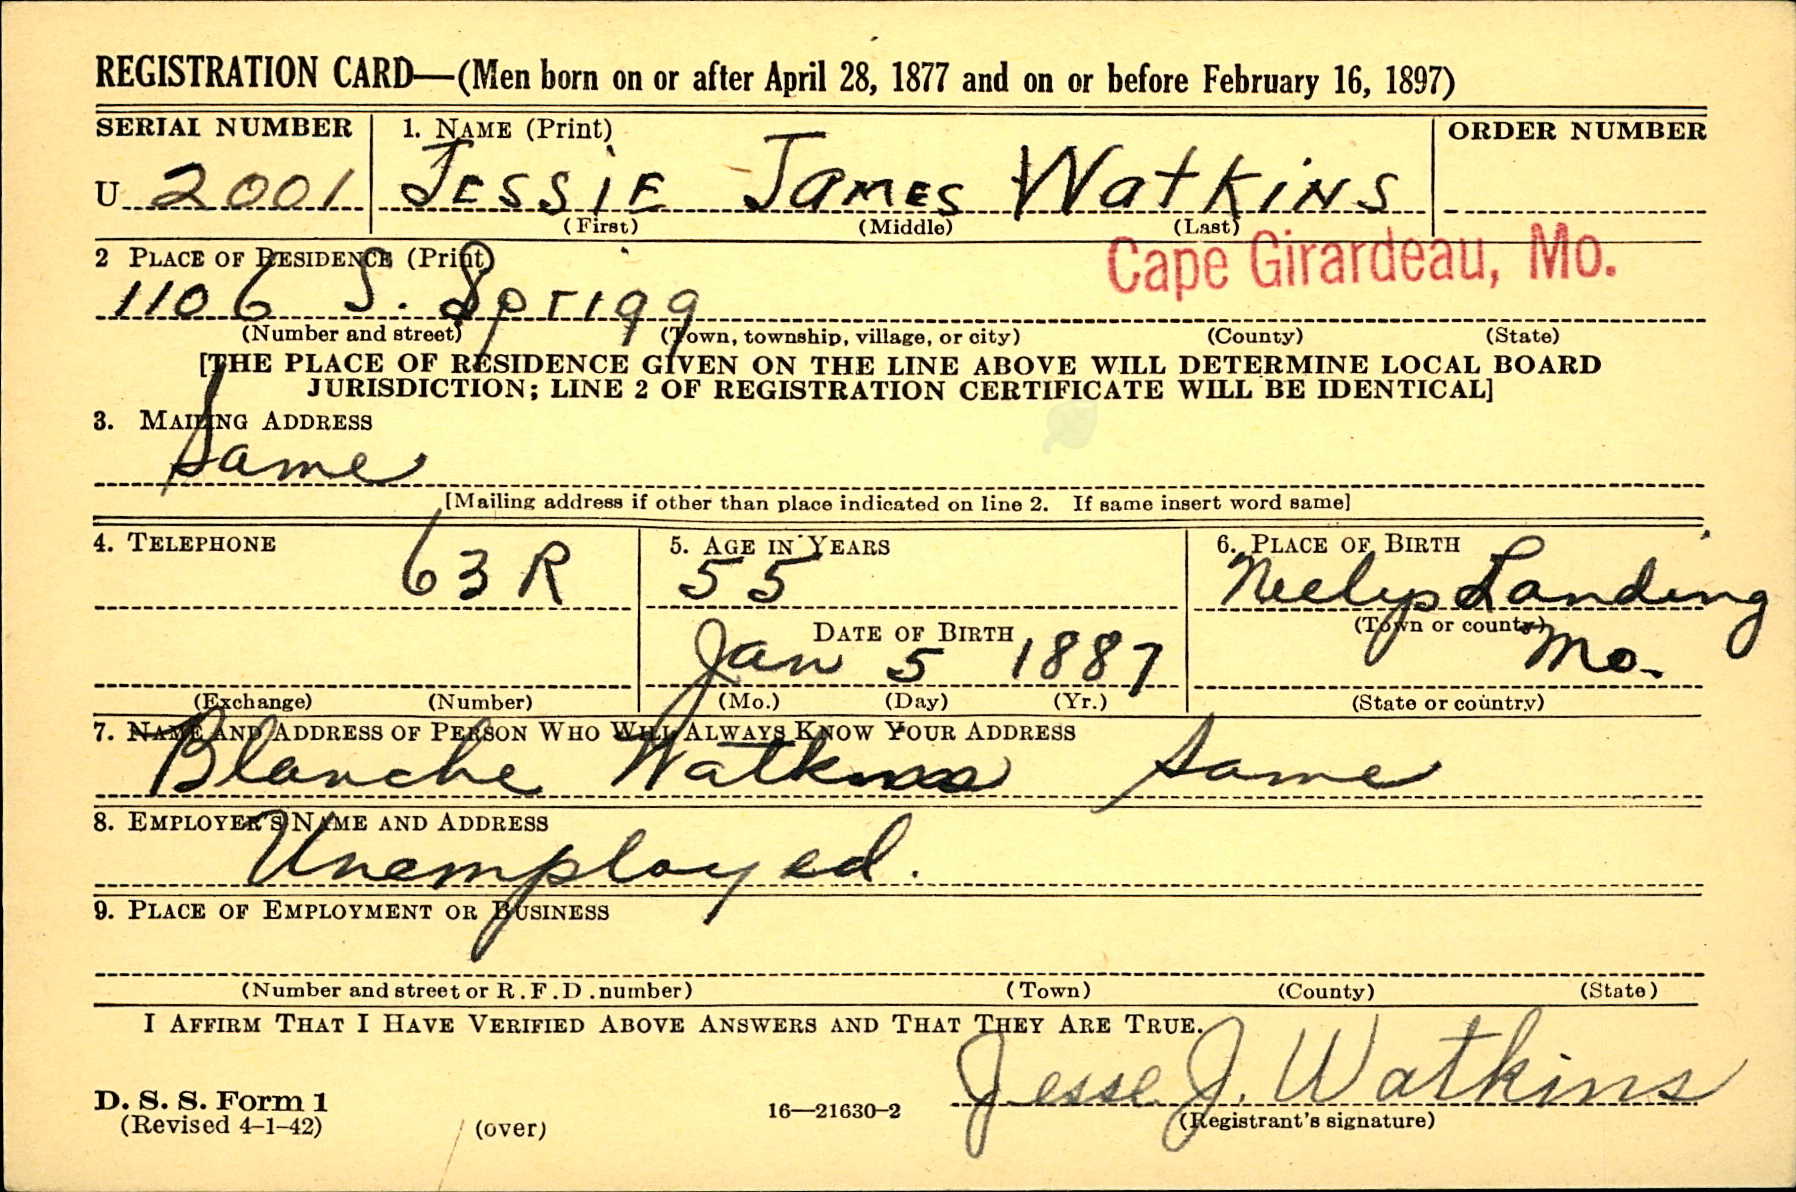 REGISTRATION CARD—(Men born on or after April 28, 1877 and on or before February 16, 1897)
SERIAL NUMBER 1. NAME (Print) ORDER NUMBER
U 2001 JESSIE JAMES WATKINS
(First) (Middle) (Last)
2 PLACE OF RESIDENCE (Print) Cape Girardeau, Mo.
1106 S. Sprigg
(Number and street) (Town, township, village, or city) (County) (State)
[THE PLACE OF RESIDENCE GIVEN ON THE LINE ABOVE WILL DETERMINE LOCAL BOARD
JURISDICTION; LINE 2 OF REGISTRATION CERTIFICATE WILL BE IDENTICAL]
3. MAILING ADDRESS
Same
[Mailing address if other than place indicated on line 2. If same insert word same]
4. TELEPHONE 5. AGE IN YEARS 6. PLACE OF BIRTH
63 R 55 Neelys Landing
DATE OF BIRTH (Town or county)
Jan 5 1887 Mo.
(Exchange) (Number) (Mo.) (Day) (Yr.) (State or country)
7. NAME AND ADDRESS OF PERSON WHO WILL ALWAYS KNOW YOUR ADDRESS
Blanche Watkins Same
8. EMPLOYER'S NAME AND ADDRESS
Unemployed.
9. PLACE OF EMPLOYMENT OR BUSINESS
(Number and street or R.F.D. number) (Town) (County) (State)
I AFFIRM THAT I HAVE VERIFIED ABOVE ANSWERS AND THAT THEY ARE TRUE.
Jesse J. Watkins
D. S. S. Form 1
(Revised 4-1-42) (over) 16—21630-2 (Registrant's signature)